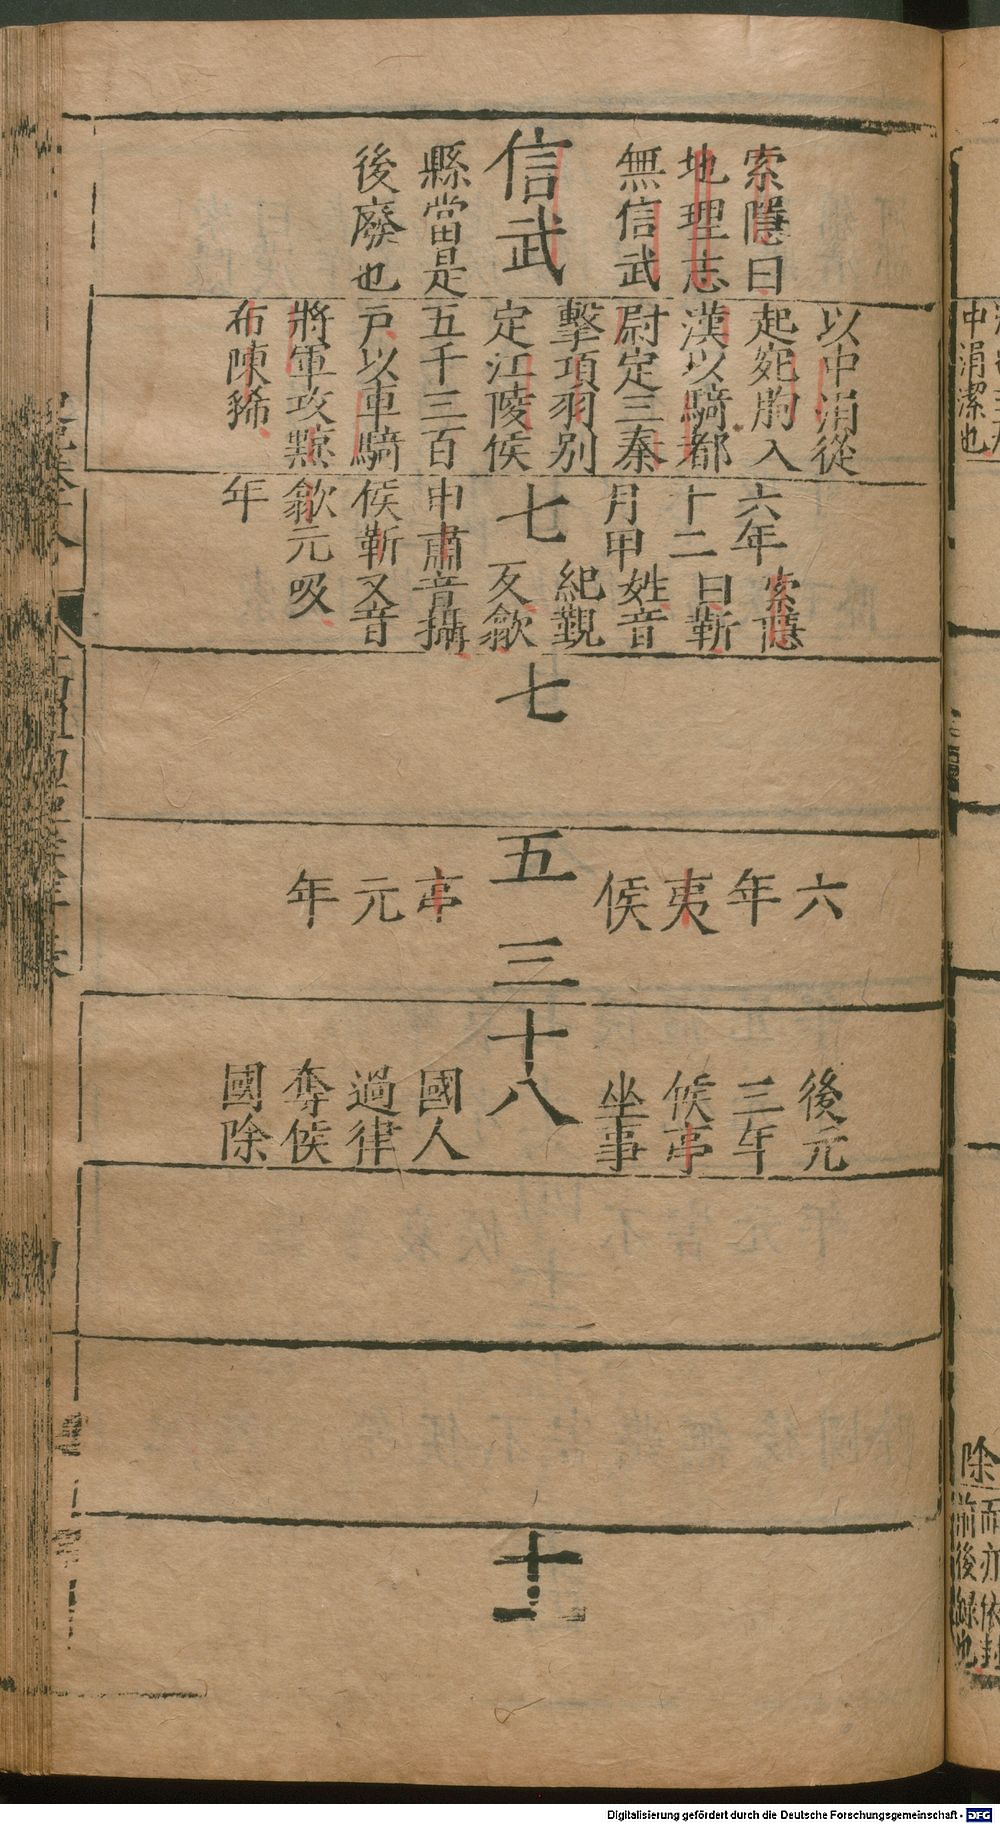 中涓潔也
除
而亦依封
前後録也
索隱曰
地理志
無信武
信武
縣當是
後廢也
以中涓從
起宛朐入
漢以騎都
尉定三秦
擊項羽别
定江陵侯
五千三百
戶以車騎
將軍攻黥
布陳豨
六年
十二
月甲
七
申肅
侯靳
歙元
年
索隱
曰靳
姓音
紀覲
反歙
音攝
又音
吸
七
六
年
夷
侯
五
三
亭
元
年
後元
三年
侯亭
坐事
十八
國人
過律
奪侯
國除
十一
Digitalisierung gefördert durch die Deutsche Forschungsgemeinschaft - DFG